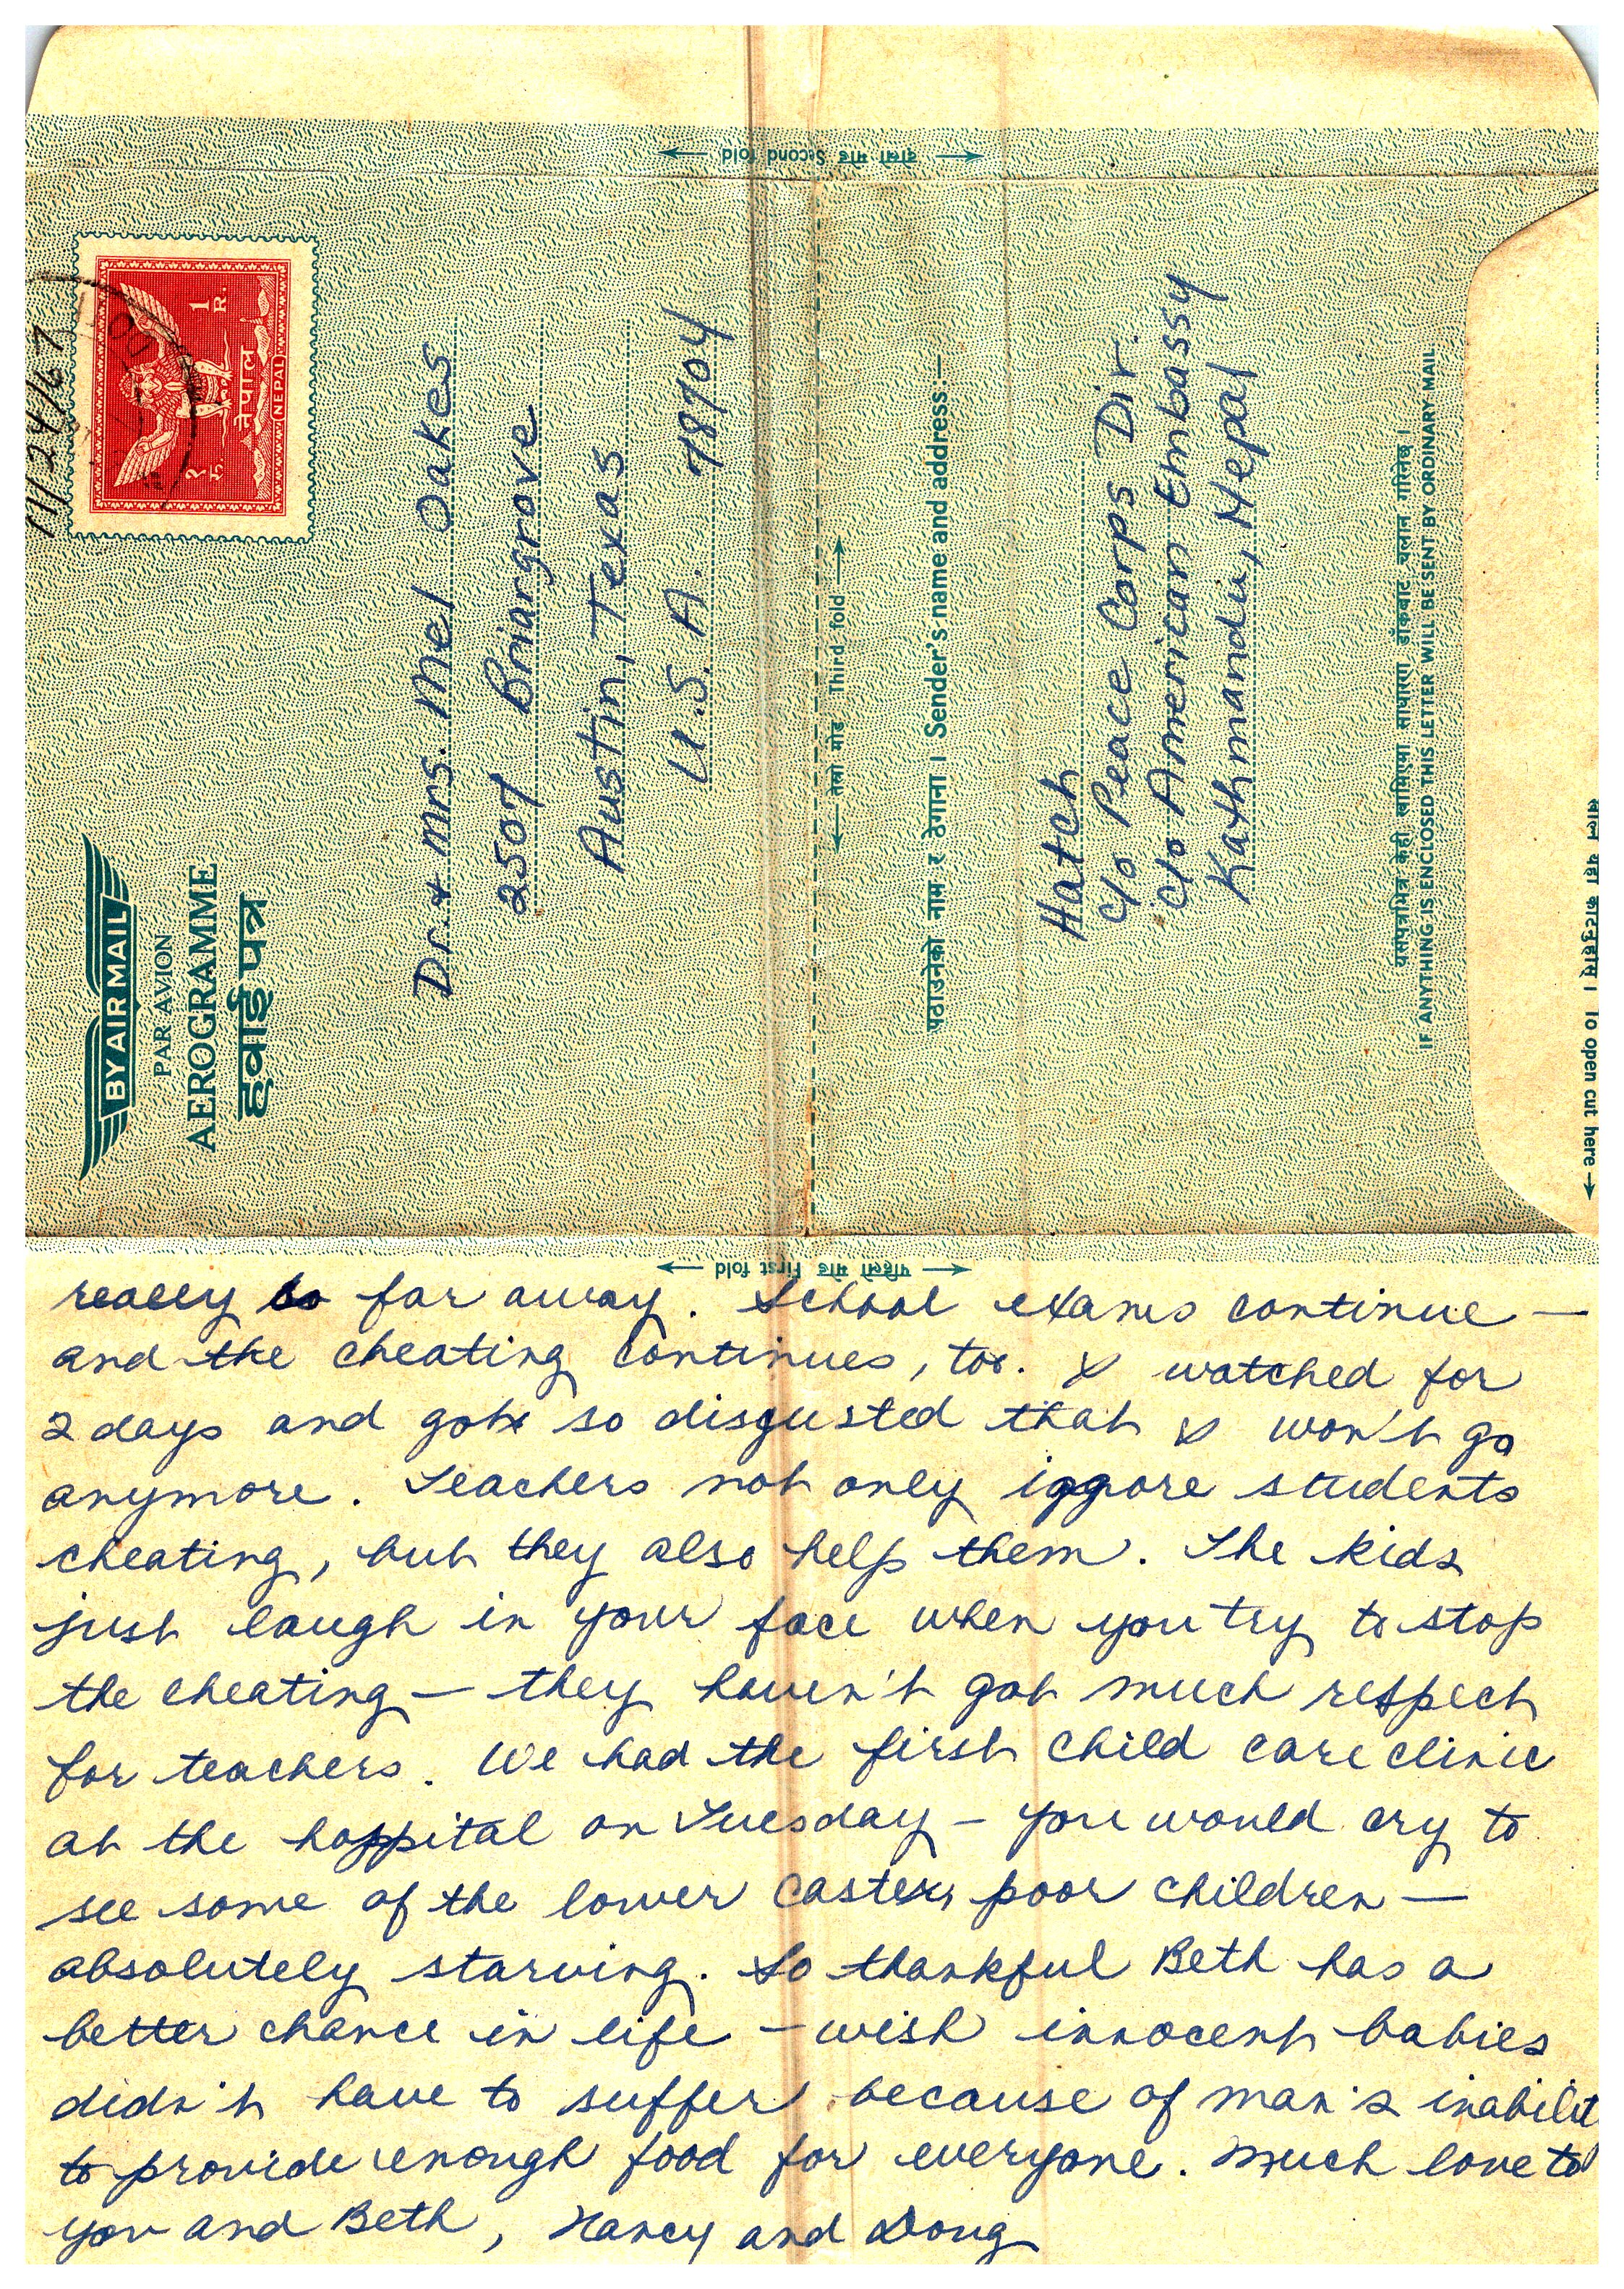 दोस्रो मोड Second fold
11/24/67
१ रु.
नेपाल
NEPAL
1 R.
BY AIR MAIL
PAR AVION
AEROGRAMME
हवाई पत्र
Dr. & Mrs. Mel Oakes
2507 Briargrove
Austin, Texas
U.S.A. 78704
तेस्रो मोड Third fold
पठाउनेको नाम र ठेगाना । Sender's name and address:—
Hatch
c/o Peace Corps Dir.
c/o American Embassy
Kathmandu, Nepal
यसपत्रभित्र केही खामिएमा साधारण डाँकबाट चलान गरिनेछ ।
IF ANYTHING IS ENCLOSED THIS LETTER WILL BE SENT BY ORDINARY MAIL
To open cut here
पहिलो मोड First fold
really so far away. School exams continue —
and the cheating continues, too. I watched for
2 days and got so disgusted that I won't go
anymore. Teachers not only ignore students
cheating, but they also help them. The kids
just laugh in your face when you try to stop
the cheating — they haven't got much respect
for teachers. We had the first child care clinic
at the hospital on Tuesday — you would cry to
see some of the lower caste, poor children —
absolutely starving. So thankful Beth has a
better chance in life — wish innocent babies
didn't have to suffer because of man's inabilit
to provide enough food for everyone. Much love to
you and Beth, Nancy and Doug